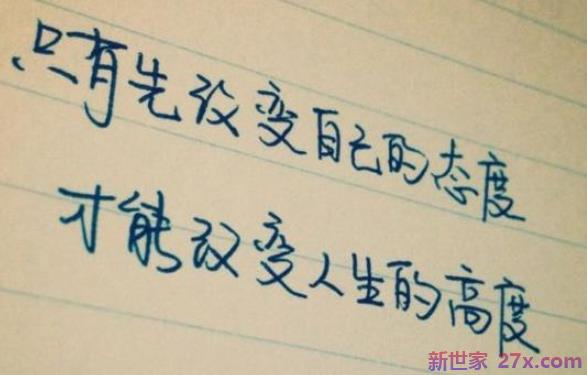 只有先改变自己的态度
才能改变人生的高度
新世家 27x.com